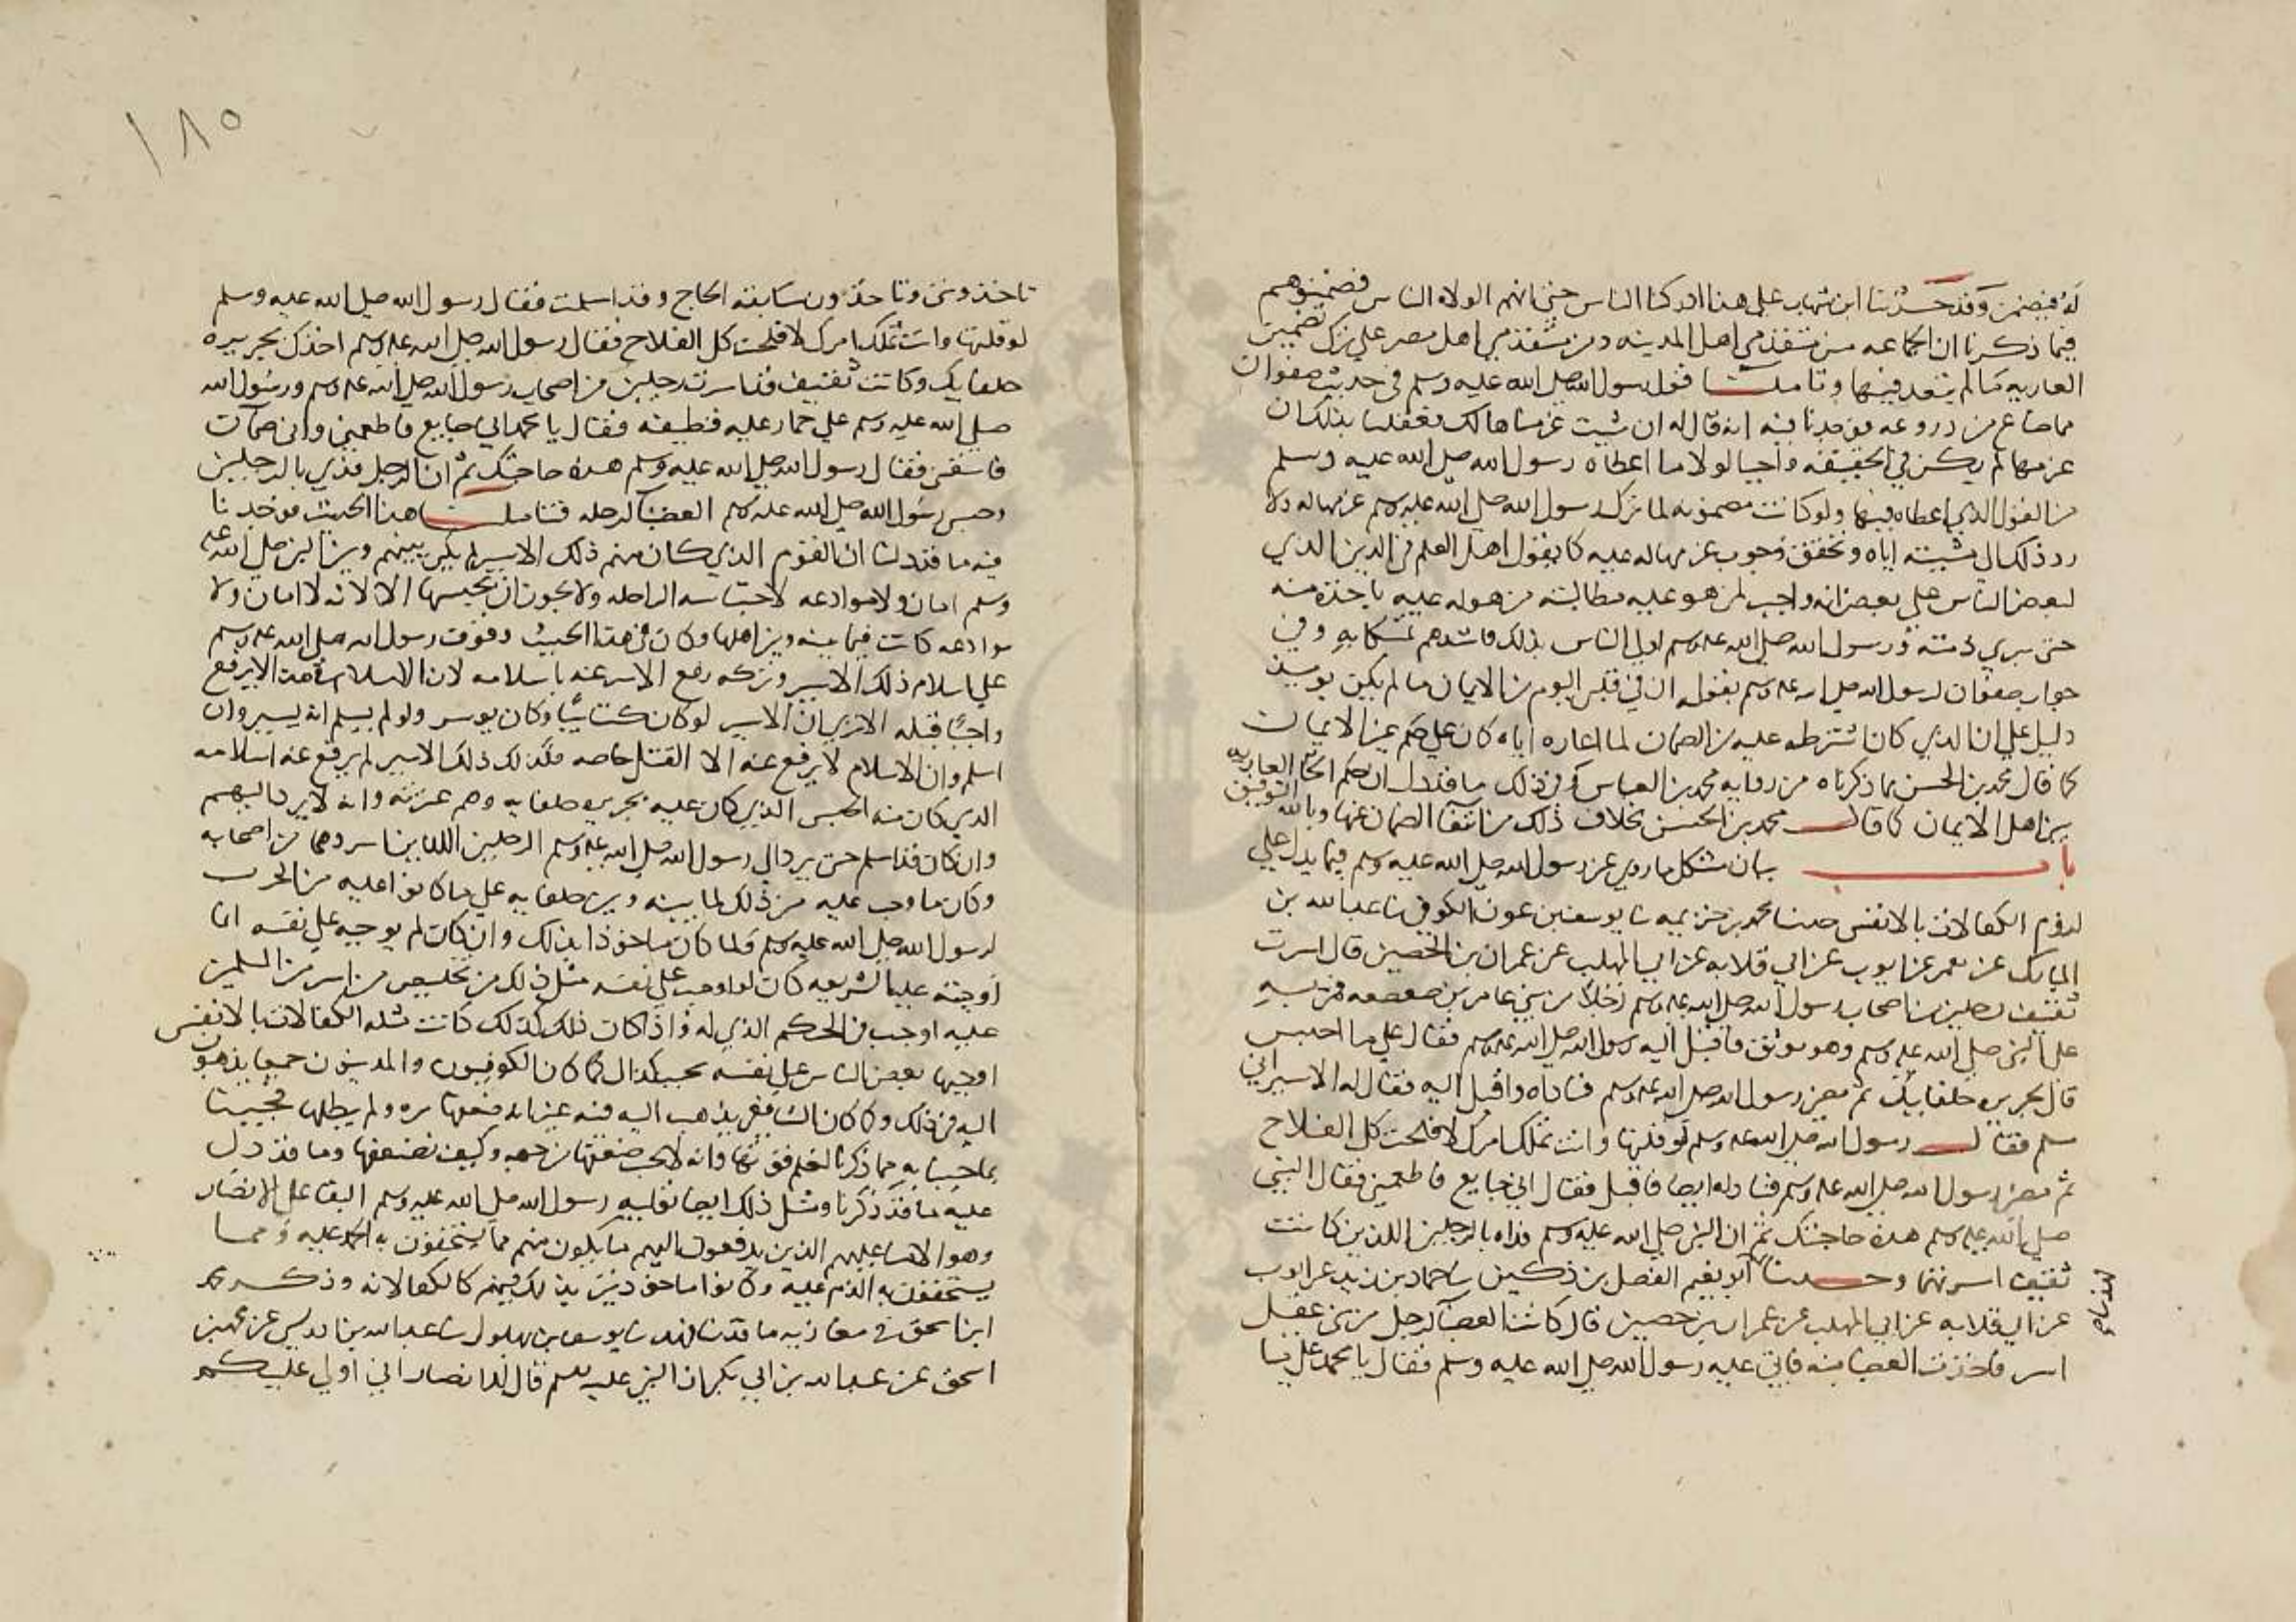 له فيضمن وقد حدثنا ابن شهاب على هذا ادركنا الناس حتى انهم الولاه الناس فضمنوهم
فيما ذكرنا ان الجماعه من متقدمي اهل المدينه ومن متقدمي اهل مصر علي ترك تضمين
العاريه مالم يتعد فيها وتاملنا قول رسول الله صلى الله عليه وسلم في حديث صفوان
مما ضاع من دروعه فوجدنا فيه انه قال له ان شيت غرمناها لك فعقلنا بذلك ان
غرمها لم يكن في الحقيقه واجبا لولا ما اعطاه رسول الله صلى الله عليه وسلم
من القول الذي اعطاه فيها ولو كانت مضمونه لما ترك رسول الله صلى الله عليه وسلم غرمها له ولا
رد ذلك الى مشيته اياه وتحقق وجوب غرمها له عليه كما يقول اهل العلم في الدين الذي
لبعض الناس على بعض انه واجب لمن هو عليه مطالبته من هو له عليه ياخذه منه
حتى يبري ذمته ورسول الله صلى الله عليه وسلم اولى الناس بذلك واشدهم تمسكا به وفي
جواب صفوان لرسول الله صلى الله عليه وسلم بقوله ان في قلبي اليوم من الايمان ما لم يكن يوميذ
دليل على ان الذي كان اشترطه عليه من الضمان لما اعاره اياه كان على حكم غير الايمان
كما قال محمد بن الحسن بما ذكرناه من روايه محمد بن العباس وفي ذلك ما قد دل ان حكم العاريه
بين اهل الايمان كما قال محمد بن الحسن بخلاف ذلك من انتفا الضمان عنها وبالله التوفيق
باب بيان مشكل ما روي عن رسول الله صلى الله عليه وسلم فيما يدل على
لزوم الكفالات بالانفس حدثنا محمد بن خزيمه نا يوسف بن عون الكوفي نا عبد الله بن
المبارك عن معمر عن ايوب عن ابي قلابه عن ابي المهلب عن عمران بن الحصين قال اسرت
ثقيف رجلين من اصحاب رسول الله صلى الله عليه وسلم رجلا من بني عامر بن صعصعه فمر به
على النبي صلى الله عليه وسلم وهو موثق فاقبل اليه رسول الله صلى الله عليه وسلم فقال على ما احبس
قال بجريره حلفايك ثم مضى رسول الله صلى الله عليه وسلم فناداه واقبل اليه فقال له الاسير اني
مسلم فقال رسول الله صلى الله عليه وسلم لو قلتها وانت تملك امرك لافلحت كل الفلاح
ثم مضى رسول الله صلى الله عليه وسلم فناداه ايضا فاقبل فقال اني جايع فاطعمني فقال النبي
صلى الله عليه وسلم هذه حاجتك ثم ان النبي صلى الله عليه وسلم فداه بالرجلين اللذين كانت
ثقيف اسرتهما وحدثنا ابو نعيم الفضل بن دكين نا حماد بن زيد عن ايوب
عن ابي قلابه عن ابي المهلب عن عمران بن حصين قال كانت العضبا لرجل من بني عقيل
اسر فاخذت العضبا منه فاتى عليه رسول الله صلى الله عليه وسلم فقال يا محمد على ما
١٨٥
تاخذونني وتاخذون سابقه الحاج وقد اسلمت فقال رسول الله صلى الله عليه وسلم
لو قلتها وانت تملك امرك لافلحت كل الفلاح فقال رسول الله صلى الله عليه وسلم اخذك بجريره
حلفايك وكانت ثقيف قد اسرت رجلين من اصحاب رسول الله صلى الله عليه وسلم ورسول الله
صلى الله عليه وسلم على حمار عليه قطيفه فقال يا محمد اني جايع فاطعمني واني ضمآن
فاسقني فقال رسول الله صلى الله عليه وسلم هذه حاجتك ثم ان الرجل فدي بالرجلين
وحبس رسول الله صلى الله عليه وسلم العضبا لرحله فتاملنا هذا الحديث فوجدنا
فيه ما قد دلنا ان القوم الذي كان منهم ذلك الاسير لم يكن بينهم وبين النبي صلى الله عليه
وسلم امان ولا موادعه لاحتباسه الراحله ولا يجوز ان يحبسها الا لانه لا امان ولا
موادعه كانت فيما بينه وبين اهلها وكان في هذا الحديث وقوف رسول الله صلى الله عليه وسلم
على اسلام ذلك الاسير وتركه رفع الاسر عنه باسلامه لان الاسلام
واجبا قبله الا ترى ان الاسير لو كان كتابيا وكان يوسر ولو لم يسلم انه
اسلم وان الاسلام لا يرفع عنه الا القتل خاصه فكذلك ذلك الاسير لم يرفع عنه اسلامه
الذي كان منه الحبس الذي كان عليه بجريره حلفايه وهم غرته وانه لا يرد اليهم
وان كان قد اسلم حتى يرد الى رسول الله صلى الله عليه وسلم الرجلين اللذين اسروهما من اصحابه
وكان ما وجب عليه من ذلك لما بينه وبين حلفايه على ما كانوا عليه من الحرب
لرسول الله صلى الله عليه وسلم فلما كان ماخوذا بذلك وان كان لم يوجبه على نفسه انما
اوجبته عليه الشريعه كان لو اوجب على نفسه مثل ذلك من تخليص من اسر من المسلمين
عليه اوجب في الحكم الذي له واذا كان ذلك كذلك كانت مثله الكفالات بالانفس
اوجبها بعض الناس على نفسه كما كان الكوفيون والمدنيون جميعا يذهبون
اليه في ذلك وكما كان الشافعي يذهب اليه فيه غير انه ضعفها مره ولم يبطلها فجيبنا
بما احتج به مما ذكرنا لنعلم قوتها وانه لا يجب ضعفها من جهه وكيف نضعفها وما قد دل
عليه ما قد ذكرنا ومثل ذلك ايضا رسول الله صلى الله عليه وسلم النقبا على الانصار
وهو الامنا عليهم الذين يدفعون اليهم ما يكون منهم مما يستحقون به الحمد عليه ومما
يستحقون به الذم عليه وكانوا ماخوذين بذلك فيهم كالكفالانه وذكر محمد
ابن اسحق في مغازيه ما قد نا فهد نا يوسف بن بهلول نا عبد الله بن ادريس عن محمد بن
اسحق عن عبد الله بن ابي بكر ان النبي عليه السلم قال للانصار اني اولى عليكم